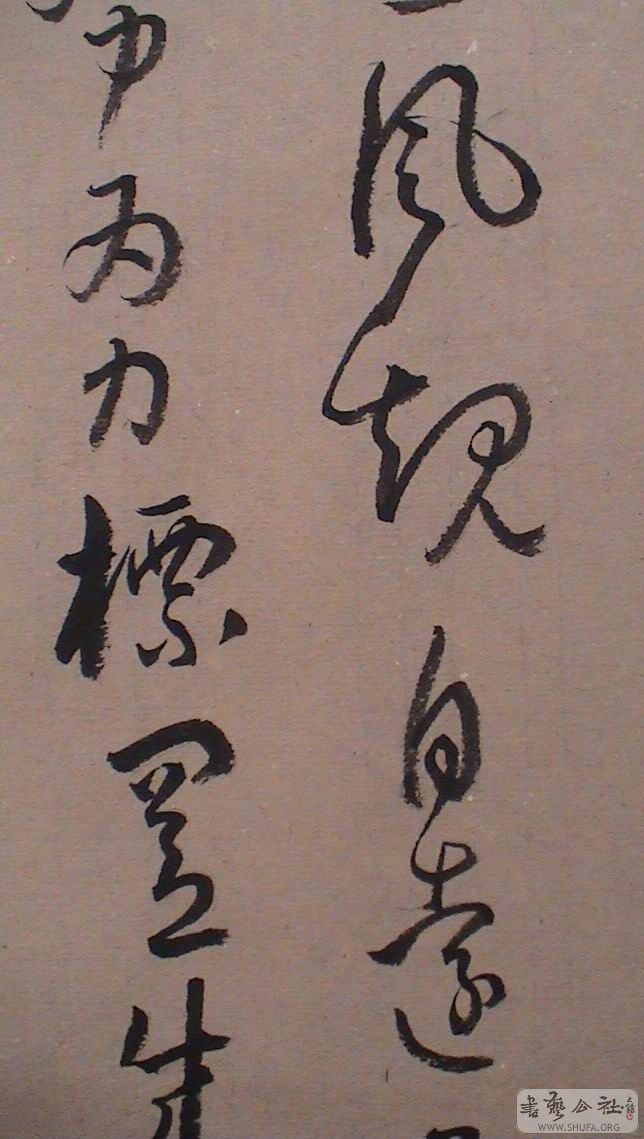 風規自遠
為力標置
書藝公社
WWW.SHUFA.ORG